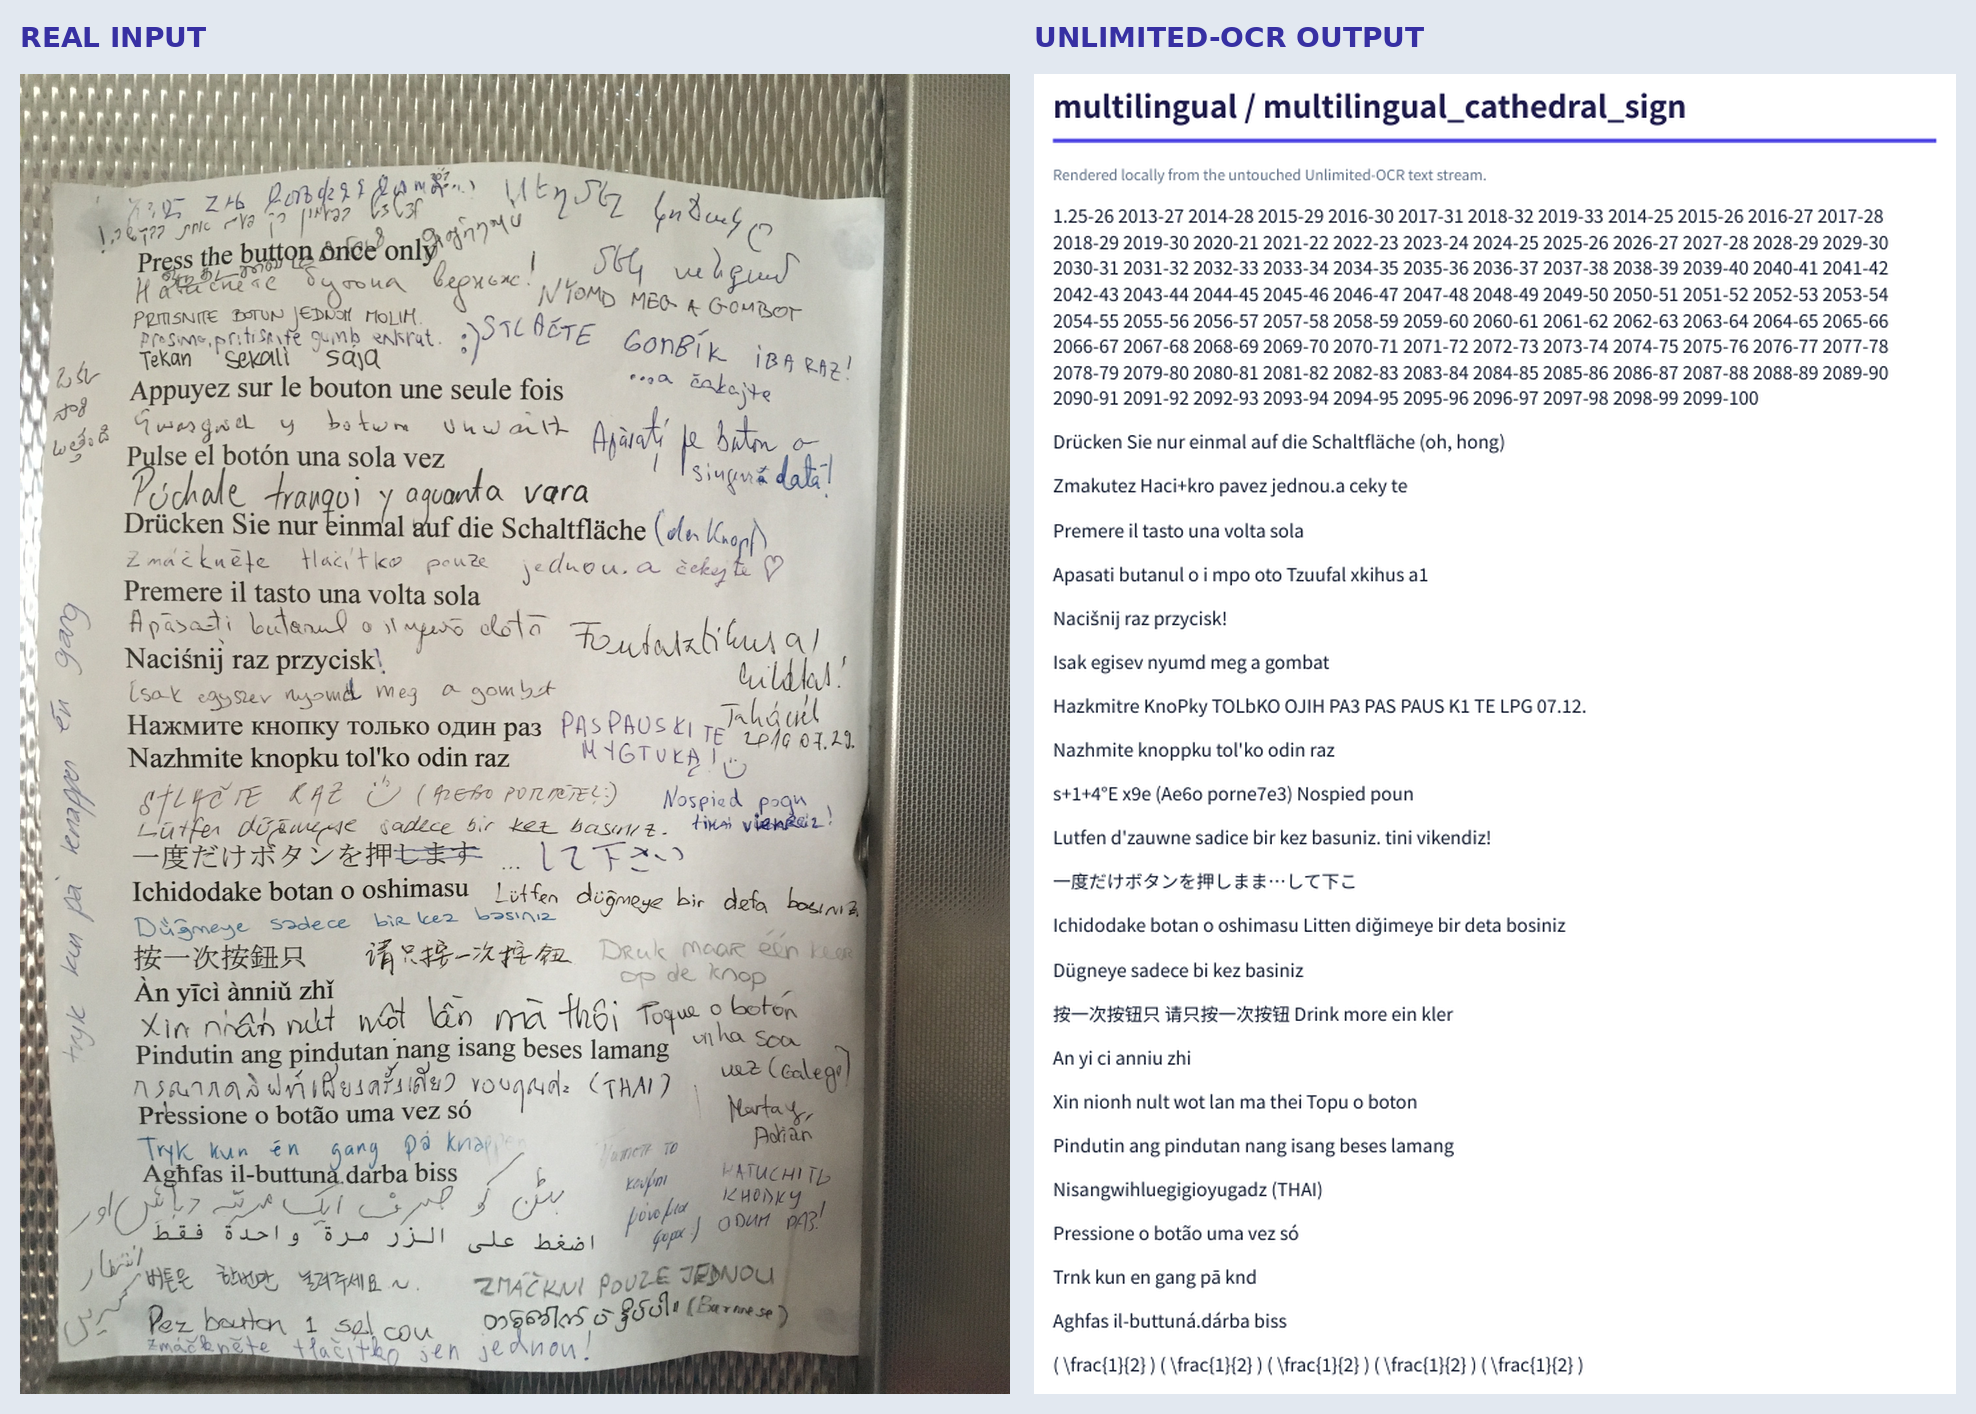 REAL INPUT
Press the button once only
NYOMD MEG A GOMBOT
PRITISNITE BOTUN JEDNOM MOLIM.
prosimo, pritisnite gumb enkrat.
:) STLAČTE GOMBÍK IBA RAZ!
...a čakajte
Tekan sekali saja
Appuyez sur le bouton une seule fois
Gwasgwch y botwm unwaith
Apăsați pe buton o
singură dată!
Pulse el botón una sola vez
Púchale tranqui y aguanta vara
Drücken Sie nur einmal auf die Schaltfläche (den Knopf)
Zmáčkněte tlačítko pouze jednou. a čekejte ♡
Premere il tasto una volta sola
Naciśnij raz przycisk!
csak egyszer nyomd meg a gombot
Нажмите кнопку только один раз
PASPAUSKITE
MYGTUKĄ!
Nazhmite knopku tol'ko odin raz
STLAČTE RAZ
Nospied pogu
Lütfen düğmeye sadece bir kez basınız.
一度だけボタンを押します ... して下さい
Ichidodake botan o oshimasu
Lütfen düğmeye bir defa basınız
Düğmeye sadece bir kez basınız
按一次按鈕只
请只按一次按钮
Druk maar één keer
op de knop
Àn yīcì ànniǔ zhǐ
Xin nhấn nút một lần mà thôi
Toque o botón
unha soa
vez (Galego)
Pindutin ang pindutan nang isang beses lamang
(THAI)
Marta y
Adrián
Pressione o botão uma vez só
Tryk kun én gang på knappen
Agħfas il-buttuna darba biss
بٹن کو صرف ایک مرتبہ دبائیں اور
انتظار
کریں
اضغط على الزر مرة واحدة فقط
버튼은 한번만 눌러주세요~.
ZMÁČKNI POUZE JEDNOU
(Burmese)
Pez bouton 1 sel cou
zmáčkněte tlačítko jen jednou!
tryk kun på knappen én gang
UNLIMITED-OCR OUTPUT
multilingual / multilingual_cathedral_sign
Rendered locally from the untouched Unlimited-OCR text stream.
1.25-26 2013-27 2014-28 2015-29 2016-30 2017-31 2018-32 2019-33 2014-25 2015-26 2016-27 2017-28
2018-29 2019-30 2020-21 2021-22 2022-23 2023-24 2024-25 2025-26 2026-27 2027-28 2028-29 2029-30
2030-31 2031-32 2032-33 2033-34 2034-35 2035-36 2036-37 2037-38 2038-39 2039-40 2040-41 2041-42
2042-43 2043-44 2044-45 2045-46 2046-47 2047-48 2048-49 2049-50 2050-51 2051-52 2052-53 2053-54
2054-55 2055-56 2056-57 2057-58 2058-59 2059-60 2060-61 2061-62 2062-63 2063-64 2064-65 2065-66
2066-67 2067-68 2068-69 2069-70 2070-71 2071-72 2072-73 2073-74 2074-75 2075-76 2076-77 2077-78
2078-79 2079-80 2080-81 2081-82 2082-83 2083-84 2084-85 2085-86 2086-87 2087-88 2088-89 2089-90
2090-91 2091-92 2092-93 2093-94 2094-95 2095-96 2096-97 2097-98 2098-99 2099-100
Drücken Sie nur einmal auf die Schaltfläche (oh, hong)
Zmakutez Haci+kro pavez jednou.a ceky te
Premere il tasto una volta sola
Apasati butanul o i mpo oto Tzuufal xkihus a1
Nacišnij raz przycisk!
Isak egisev nyumd meg a gombat
Hazkmitre KnoPky TOLbKO OJIH PA3 PAS PAUS K1 TE LPG 07.12.
Nazhmite knoppku tol'ko odin raz
s+1+4°E x9e (Ae6o porne7e3) Nospied poun
Lutfen d'zauwne sadice bir kez basuniz. tini vikendiz!
一度だけボタンを押しまま…して下こ
Ichidodake botan o oshimasu Litten diğimeye bir deta bosiniz
Dügneye sadece bi kez basiniz
按一次按钮只 请只按一次按钮 Drink more ein kler
An yi ci anniu zhi
Xin nionh nult wot lan ma thei Topu o boton
Pindutin ang pindutan nang isang beses lamang
Nisangwihluegigioyugadz (THAI)
Pressione o botão uma vez só
Trnk kun en gang pā knd
Aghfas il-buttuná.dárba biss
( \frac{1}{2} ) ( \frac{1}{2} ) ( \frac{1}{2} ) ( \frac{1}{2} ) ( \frac{1}{2} )